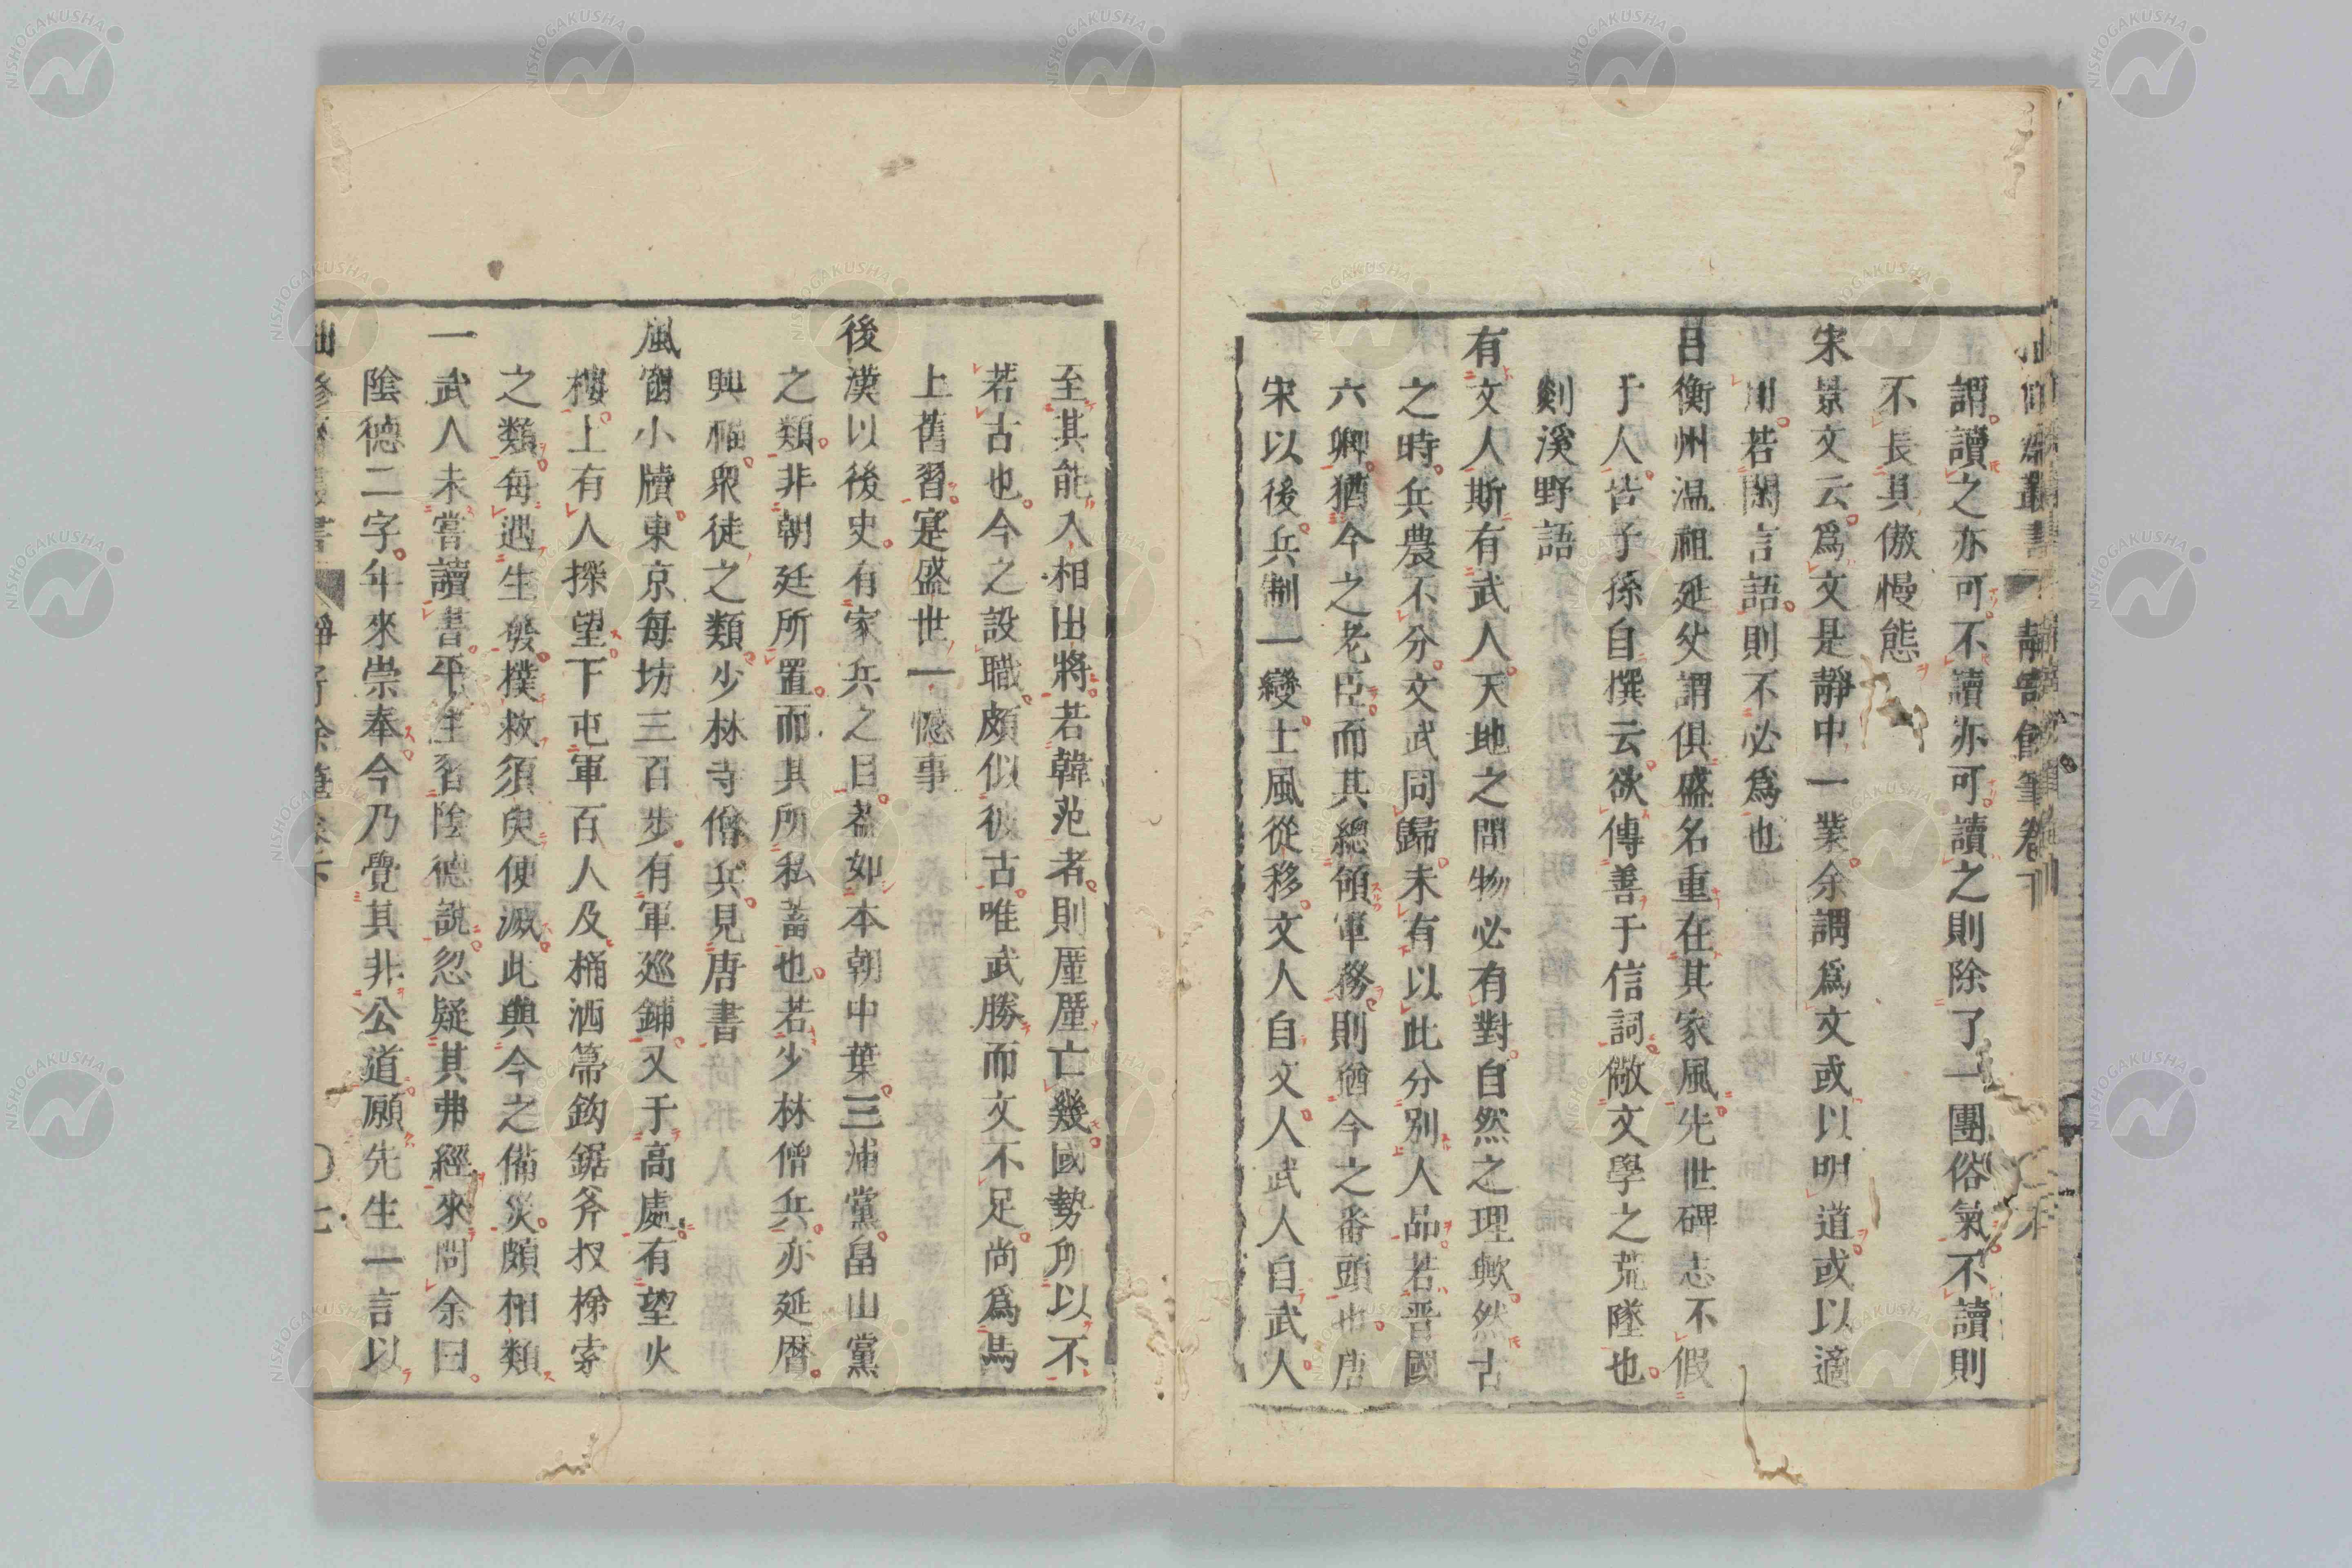 謂讀之亦可不讀亦可讀之則除了一團俗氣不讀則
不長其傲慢態
宋景文云爲文是靜中一業余謂爲文或以明道或以適
用若閑言語則不必爲也
呂衡州温祖延父謂俱盛名重在其家風先世碑志不假
于人皆子孫自撰云欲傳善于信詞儆文學之荒墜也
剡溪野語
有文人斯有武人天地之間物必有對自然之理歟然古
之時兵農不分文武同歸未有以此分別人品若晋國
六卿猶今之老臣而其總領軍務則猶今之番頭也唐
宋以後兵制一變士風從移文人自文人武人自武人
至其能入相出將若韓范者則厪厪亡幾國勢所以不
若古也今之設職頗似彼古唯武勝而文不足尚爲馬
上舊習寔盛世一憾事
後漢以後史有家兵之目葢如本朝中葉三浦黨畠山黨
之類非朝廷所置而其所私蓄也若少林僧兵亦延曆
興福衆徒之類少林寺僧兵見唐書
風窗小牘東京每坊三百步有軍廵鋪又于高處有望火
樓上有人探望下屯軍百人及桶洒箒鈎鋸斧杈梯索
之類每遇生發撲救須臾便滅此與今之備災頗相類
一武人未嘗讀書平生名陰德說忽疑其弗經來問余曰
陰德二字年來崇奉今乃覺其非公道願先生一言以